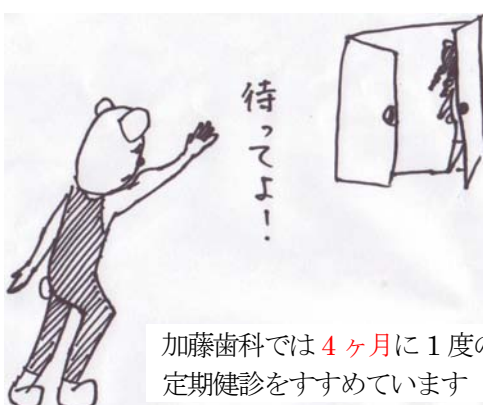 待ってよ！
加藤歯科では４ヶ月に１度の
定期健診をすすめています